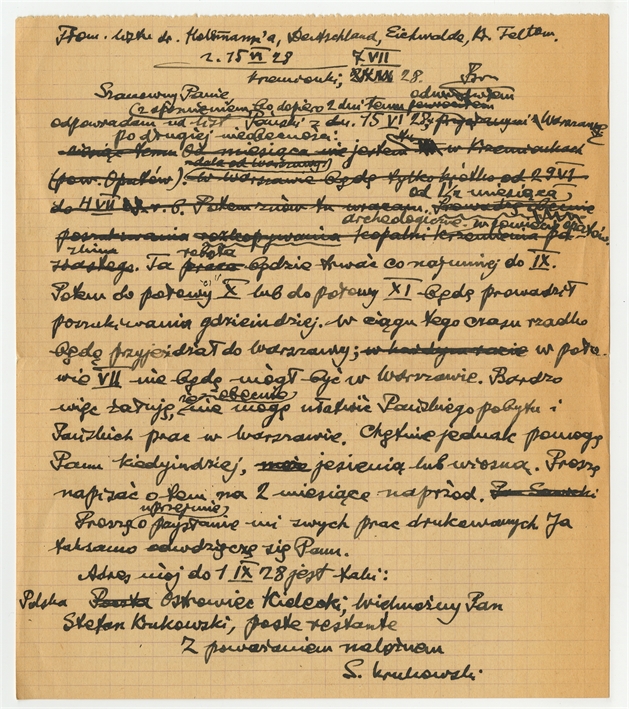 Tłom. listu dr. Hohlmann'a, Deutschland, Eichwalde, Kr. Teltow.
z. 15 VI 28 7 VII
Kremionki; 28.
Szanowny Panie
(z opóźnieniem, bo dopiero 2 dni temu
odpowiadam na list Pański z dn. 15 VI 28, z Warszawy
po drugiej nieobecności:
jestem w Krzemionkach
(pow. Opatów). w Warszawie będę tylko krótko od 29 VI
od 1½ miesiąca
do 4 VII b. r. b. Potem znów tu wracam.
archeologiczne w powiecie opatow.
poszukiwania rozkopywania kopalni krzemienia
Ta robota będzie trwać co najmniej do IX.
Potem do połowy X lub do połowy XI będę prowadził
poszukiwania gdzieindziej. W ciągu tego czasu rzadko
będę przyjeżdżał do Warszawy; w każdym razie w poło-
wie VII nie będę mógł być w Warszawie. Bardzo
więc żałuję, że obecnie nie mogę ułatwić Pańskiego pobytu i
Pańskich prac w Warszawie. Chętnie jednak pomogę
Panu kiedyindziej, jesienią lub wiosną. Proszę
napisać o tem na 2 miesiące naprzód.
uprzejmie
Proszę o przysłanie mi swych prac drukowanych Ja
taksamo odwdzięczę się Panu.
Adres mój do 1 IX 28 jest taki:
Polska Poczta Ostrowiec Kielecki; Wielmożny Pan
Stefan Krukowski, poste restante
Z poważaniem należnem
S. Krukowski